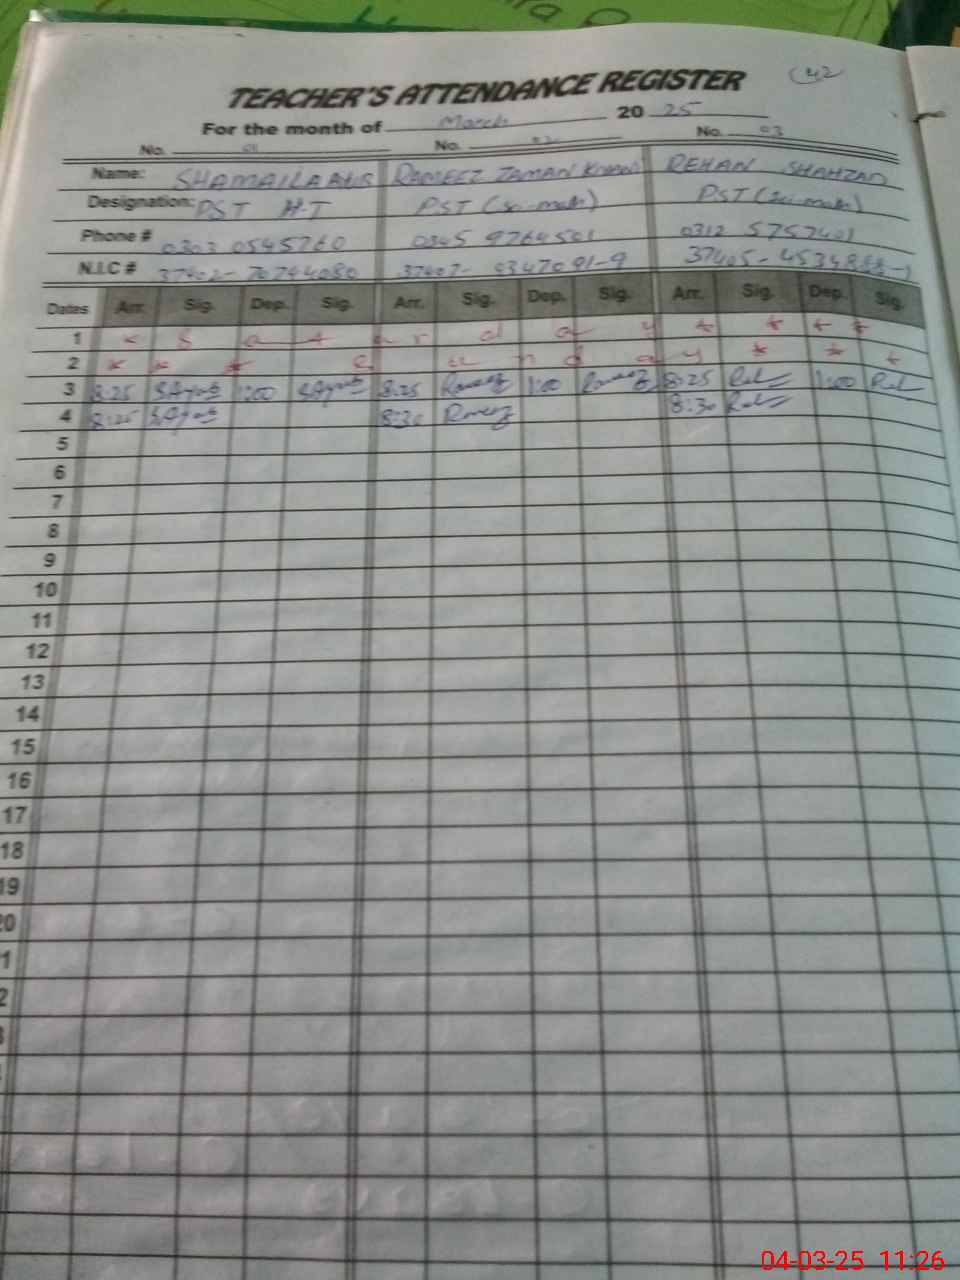 42
TEACHER'S ATTENDANCE REGISTER
For the month of March 2025
No. 01 No. 02 No. 03
Name: SHAMAILA RAMEEZ ZAMAN KHAN REHAN SHAHZAD
Designation: PST H-T PST (sci-math) PST (sci-math)
Phone # 0303 0545760 0345 9764501 0312 5757401
N.I.C #
Dates Arr. Sig. Dep. Sig. Arr. Sig. Dep. Sig. Arr. Sig. Dep. Sig.
1 * S a t u r d a y * * * *
2 * * * S u n d a y * * *
3 8:25 1:00 8:25 Rameez 1:00 Rameez 8:25 1:00
4 8:25 8:30 Rameez 8:30
5
6
7
8
9
10
11
12
13
14
15
16
17
18
19
20
1
2
3
04-03-25 11:26